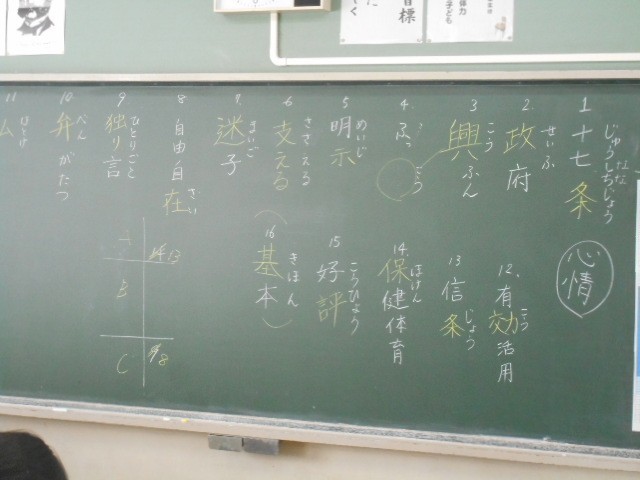 1 十七条
じゅうしちじょう
なな
心情
2. 政府
せいふ
3 興ふん
こう
4. ふっ
こう
5 明示
めいじ
6 支える
ささえる
7. 迷子
まいご
8 自由自在
ざい
9 独り言
ひとりごと
10. 弁がたつ
べん
11 仏
ほとけ
12. 有効活用
こう
13 信条
じょう
14. 保健体育
ほけん
15 好評
こうひょう
(16 基本)
きほん
B
C
目標
体力
子ども